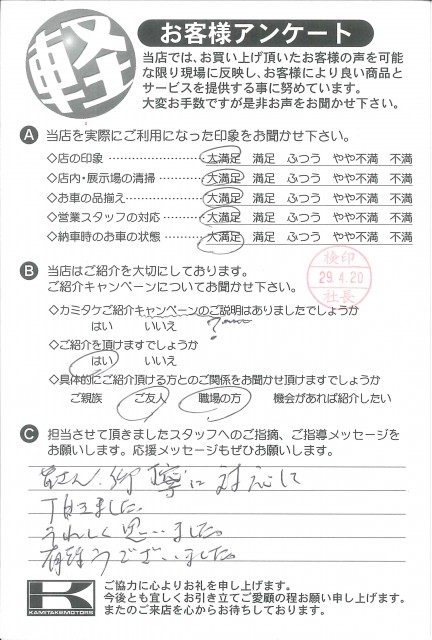 軽
お客様アンケート
当店では、お買い上げ頂いたお客様の声を可能
な限り現場に反映し、お客様により良い商品と
サービスを提供する事に努めています。
大変お手数ですが是非お声をお聞かせ下さい。
A 当店を実際にご利用になった印象をお聞かせ下さい。
◇店の印象 ………………… 大満足 満足 ふつう やや不満 不満
◇店内・展示場の清掃 ……… 大満足 満足 ふつう やや不満 不満
◇お車の品揃え …………… 大満足 満足 ふつう やや不満 不満
◇営業スタッフの対応 ……… 大満足 満足 ふつう やや不満 不満
◇納車時のお車の状態 ……… 大満足 満足 ふつう やや不満 不満
検印
29.4.20
社長
B 当店はご紹介を大切にしております。
ご紹介キャンペーンについてお聞かせ下さい。
◇カミタケご紹介キャンペーンのご説明はありましたでしょうか
はい いいえ ?
◇ご紹介を頂けますでしょうか
はい いいえ
◇具体的にご紹介頂ける方とのご関係をお聞かせ頂けますでしょうか
ご親族 ご友人 職場の方 機会があれば紹介したい
C 担当させて頂きましたスタッフへのご指摘、ご指導メッセージを
お願いします。応援メッセージもぜひお願いします。
皆さん、御丁寧に対応して
頂きました。
うれしく思いました。
有難うございました。
K
KAMITAKEMOTORS
ご協力に心よりお礼を申し上げます。
今後とも宜しくお引き立てご愛顧の程お願い申し上げます。
またのご来店を心からお待ちしております。